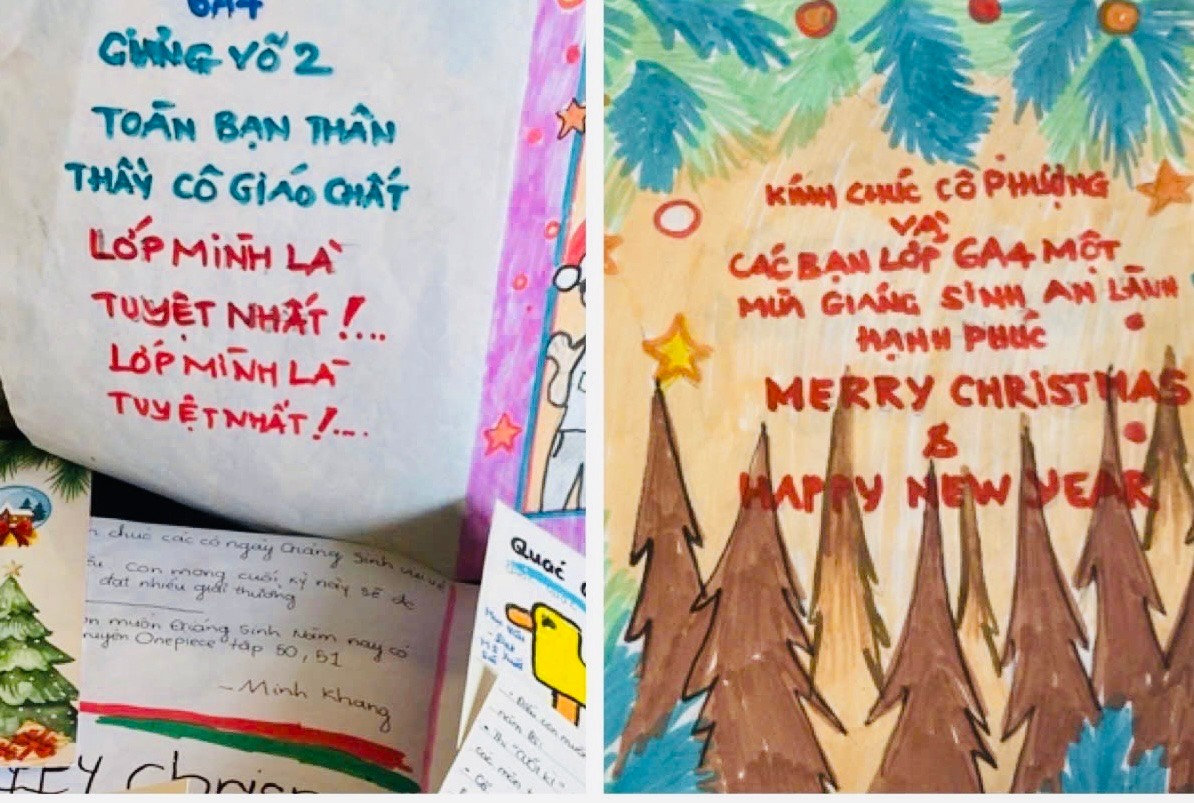 6A4
GIẢNG VÕ 2
TOÀN BẠN THÂN
THẦY CÔ GIÁO CHẤT
LỚP MÌNH LÀ
TUYỆT NHẤT !...
LỚP MÌNH LÀ
TUYỆT NHẤT !....
chúc các cô ngày Giáng Sinh vui vẻ
Con mong cuối kỳ này sẽ
đạt nhiều giải thưởng
muốn Giáng Sinh Năm nay có
Onepiece tập 50, 51
- Minh Khang
Quác
KÍNH CHÚC CÔ PHƯỢNG
VÀ
CÁC BẠN LỚP 6A4 MỘT
MÙA GIÁNG SINH AN LÀNH
HẠNH PHÚC
MERRY CHRISTMAS
&
HAPPY NEW YEAR